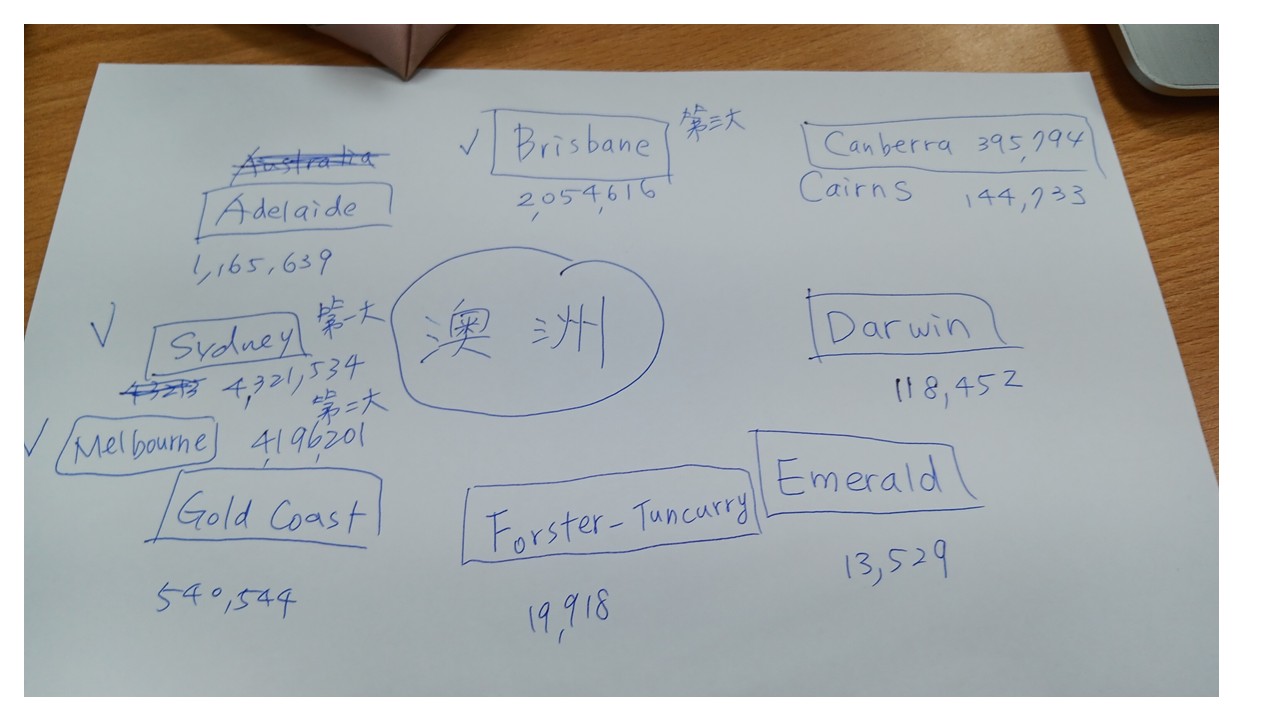 Australia
Adelaide
1,165,639
Brisbane 第三大
2,054,616
Canberra 395,794
Cairns 144,733
澳洲
Sydney 第一大
43213 4,321,534
第二大
Melbourne 4,196,201
Gold Coast
540,544
Forster-Tuncurry
19,918
Darwin
118,452
Emerald
13,529